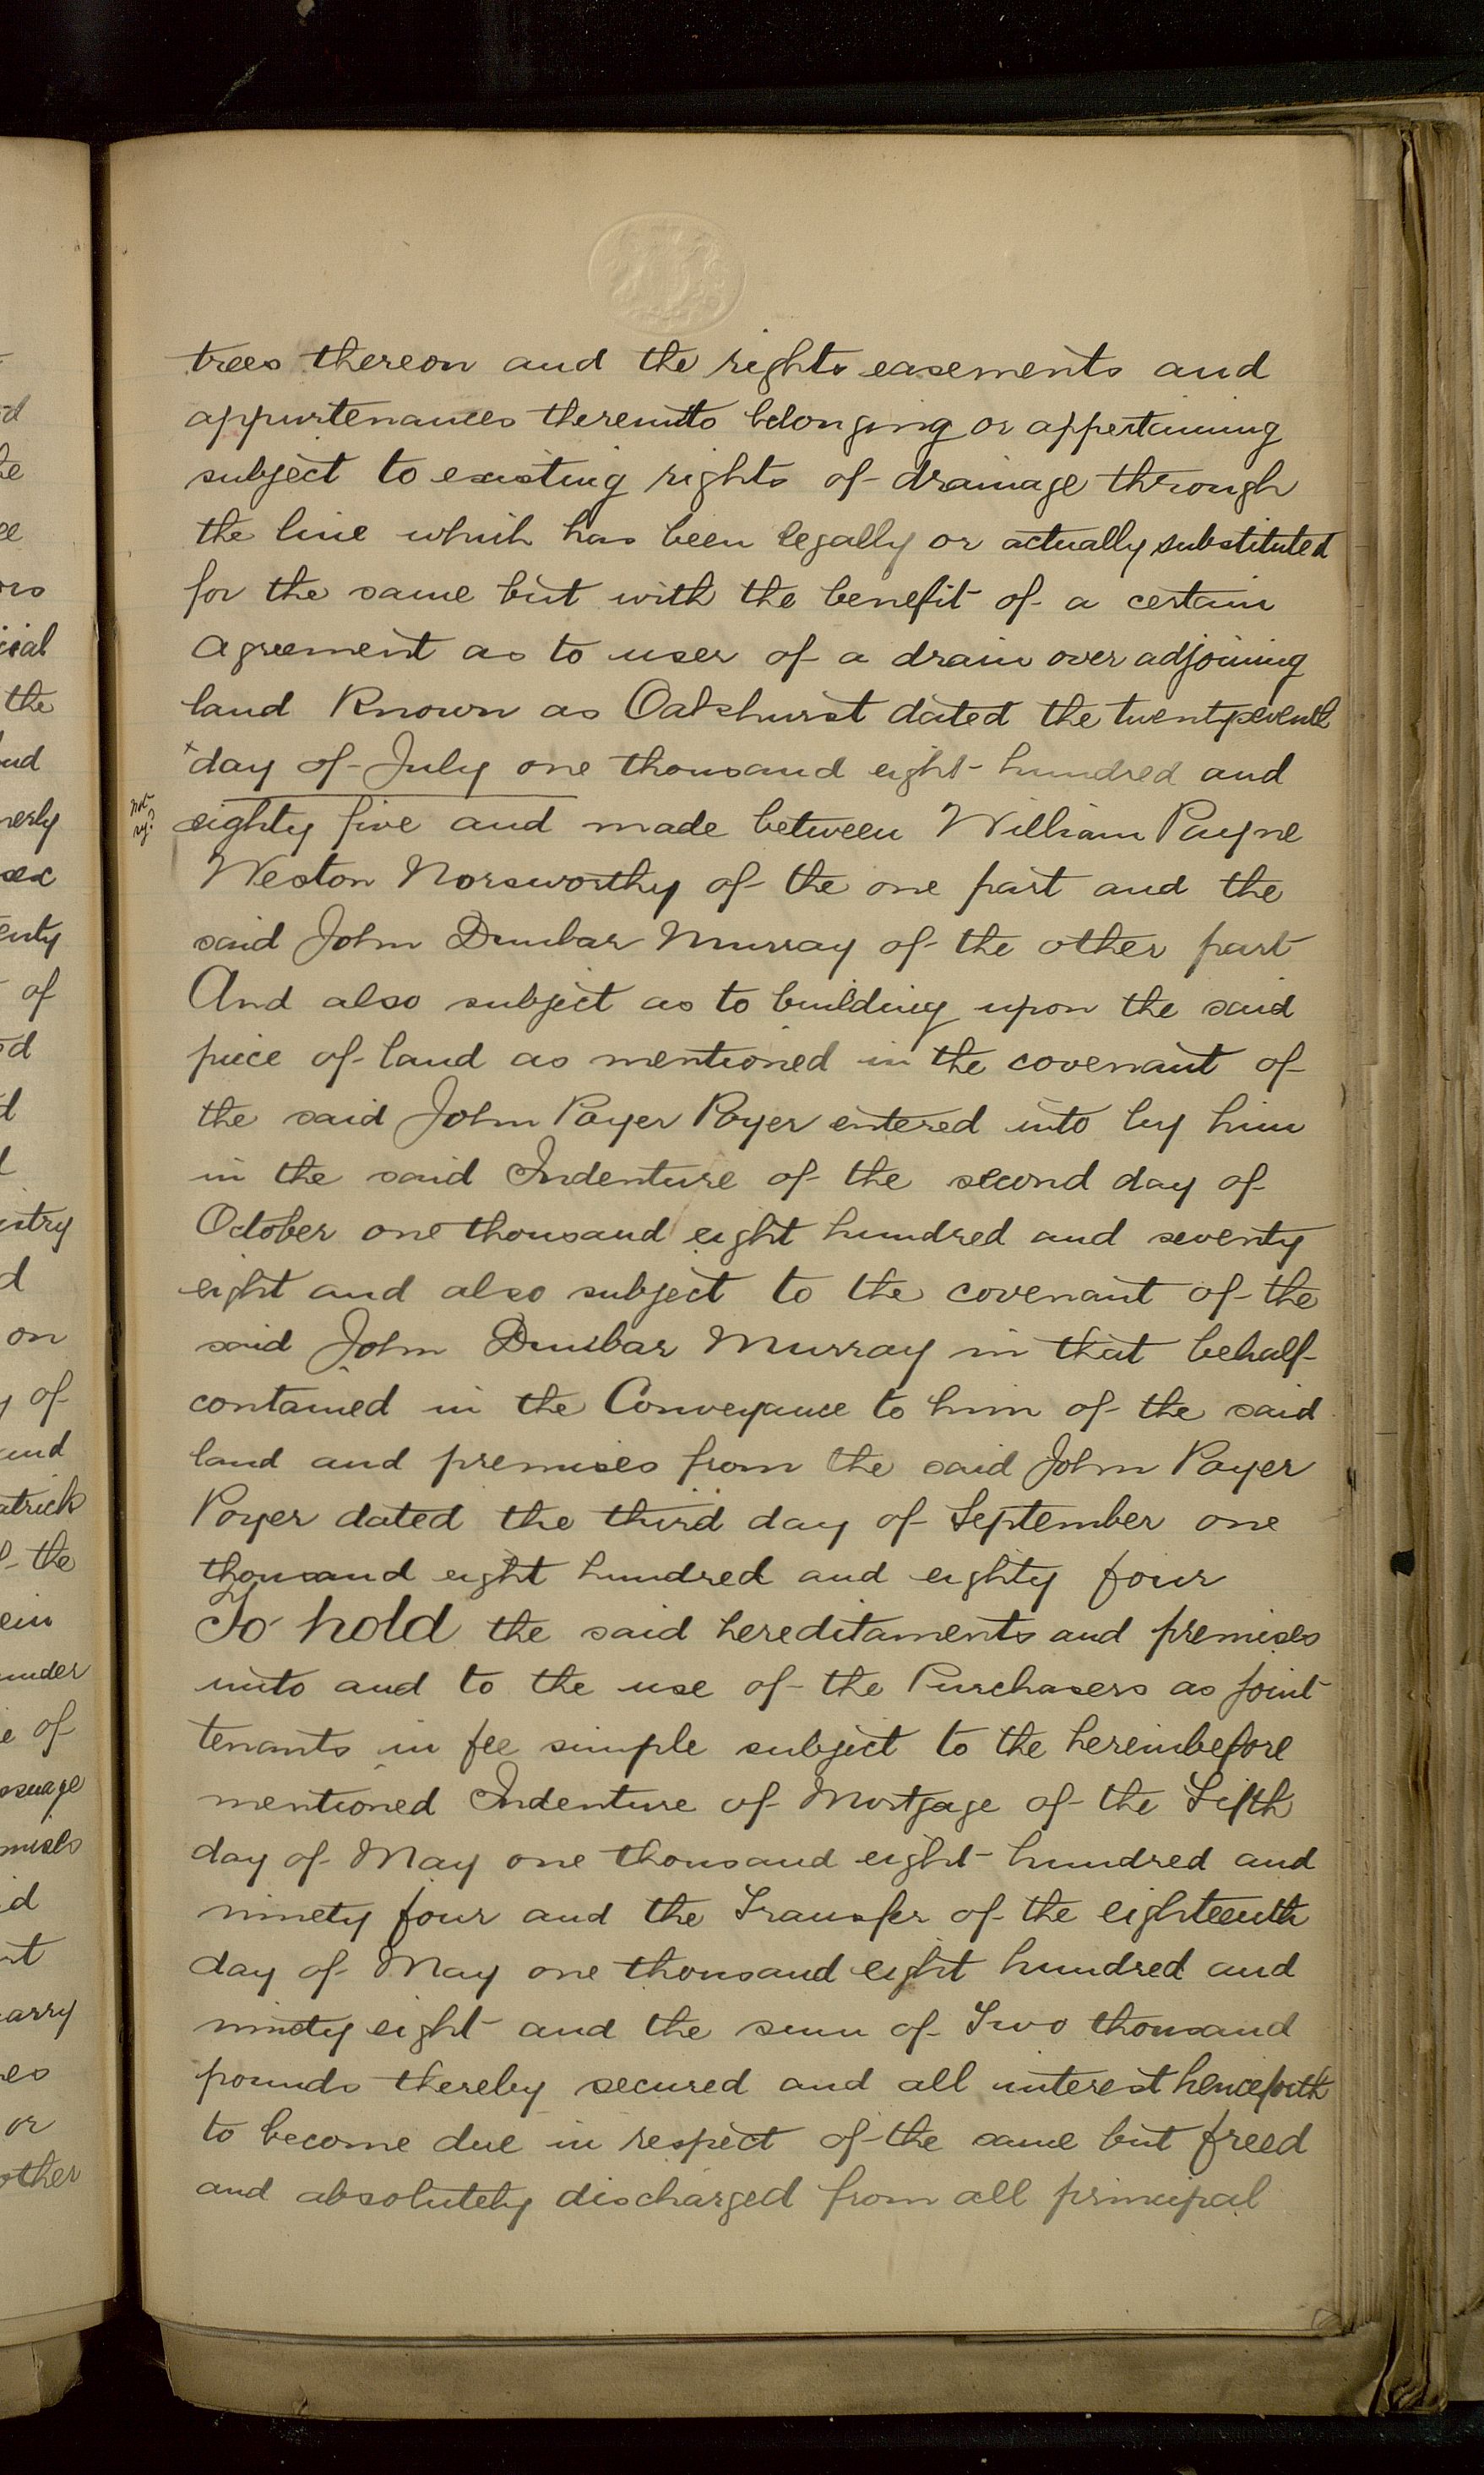 trees thereon and the rights easements and
appurtenances thereunto belonging or appertaining
subject to existing rights of drainage through
the line which has been legally or actually substituted
for the same but with the benefit of a certain
agreement as to user of a drain over adjoining
land Known as Oakhurst dated the twentyseventh
x day of July one thousand eight hundred and
not
eighty five and made between William Payne
Weston Norsworthy of the one part and the
said John Dunbar Murray of the other part
And also subject as to building upon the said
piece of land as mentioned in the covenant of
the said John Poyer Poyer entered into by him
in the said Indenture of the second day of
October one thousand eight hundred and seventy
eight and also subject to the covenant of the
said John Dunbar Murray in that behalf
contained in the Conveyance to him of the said
land and premises from the said John Poyer
Poyer dated the third day of September one
thousand eight hundred and eighty four
To hold the said hereditaments and premises
unto and to the use of the Purchasers as joint
tenants in fee simple subject to the hereinbefore
mentioned Indenture of Mortgage of the Fifth
day of May one thousand eight hundred and
ninety four and the Transfer of the eighteenth
day of May one thousand eight hundred and
ninety eight and the sum of Two thousand
pounds thereby secured and all interest henceforth
to become due in respect of the same but freed
and absolutely discharged from all principal